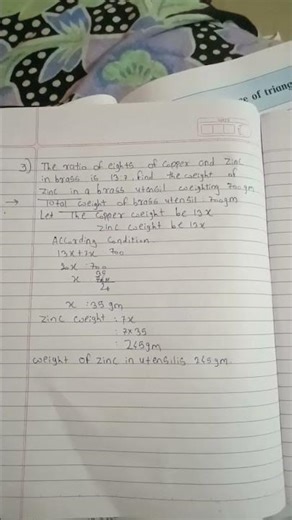 e of triang
3) The ratio of eights of copper and Zinc
in brass is 13:7. find the weight of
Zinc in a brass utensil weighting 700 gm
→ Total weight of brass utensil 700gm
Let The copper weight be 13x
Zinc weight be 13x
According Condition
13x+7x 700
20x 700
x
20
x : 35 gm
Zinc weight : 7x
: 7x35
: 265gm
weight of zinc in utensilis 265gm.